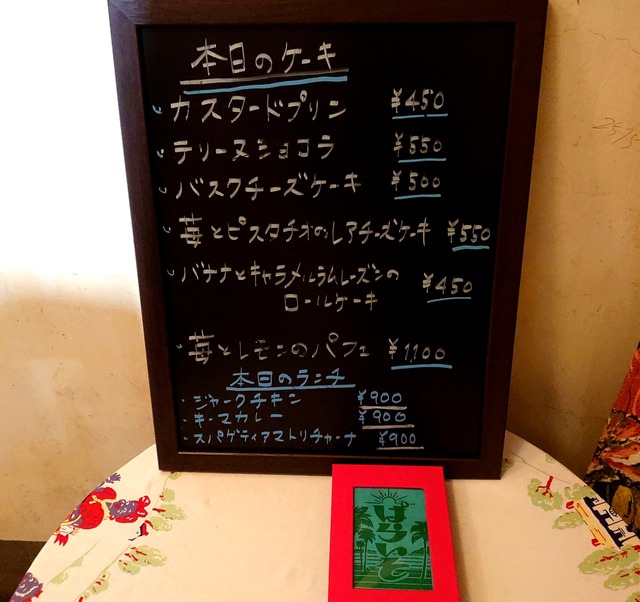 本日のケーキ
カスタードプリン ¥450
テリーヌショコラ ¥550
バスクチーズケーキ ¥500
苺とピスタチオのレアチーズケーキ ¥550
バナナとキャラメルラムレーズンの
ロールケーキ ¥450
苺とレモンのパフェ ¥1100
本日のランチ
ジャークチキン ¥900
キーマカレー ¥900
スパゲティアマトリチャーナ ¥900
ぱらいそ